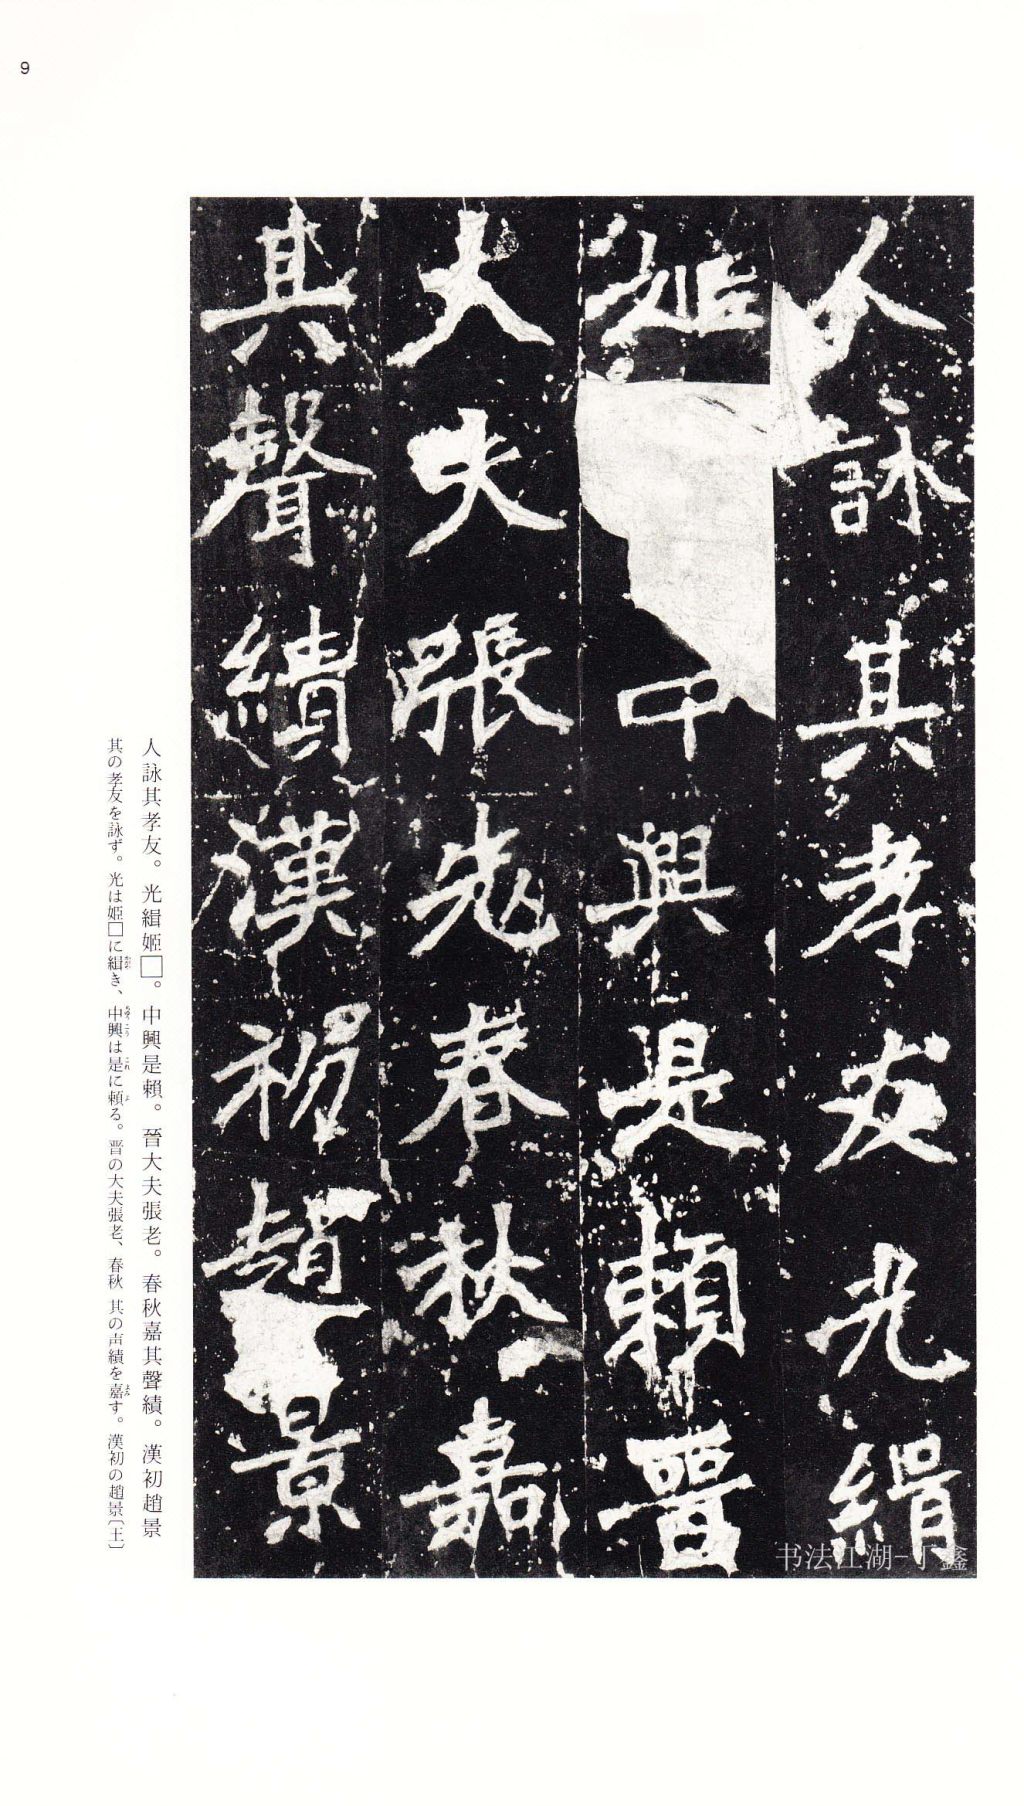 9
人詠其孝友光緝
姬中興是賴晉
大夫張老春秋嘉
其聲績漢初趙景
人詠其孝友。光緝姬□。中興是賴。晉大夫張老。春秋嘉其聲績。漢初趙景
其の孝友を詠ず。光は姫□に緝き、中興は是に頼る。晋の大夫張老、春秋 其の声績を嘉す。漢初の趙景〔王〕
书法江湖-丁鑫